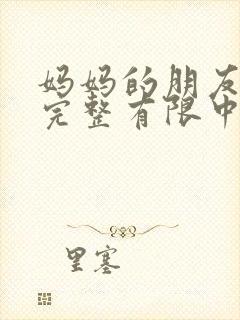 妈妈的朋友
完整有限中
里塞